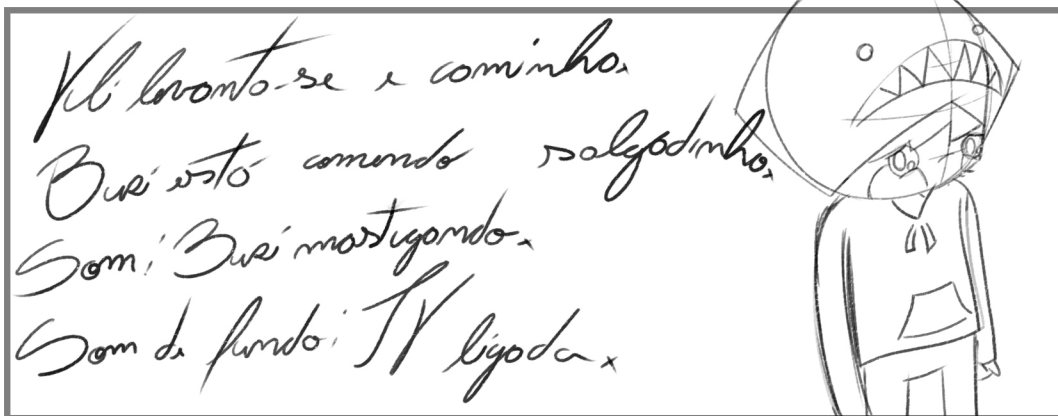 Yuli levanta-se e caminha.
Buri está comendo salgadinho.
Som: Buri mastigando.
Som de fundo: TV ligada.